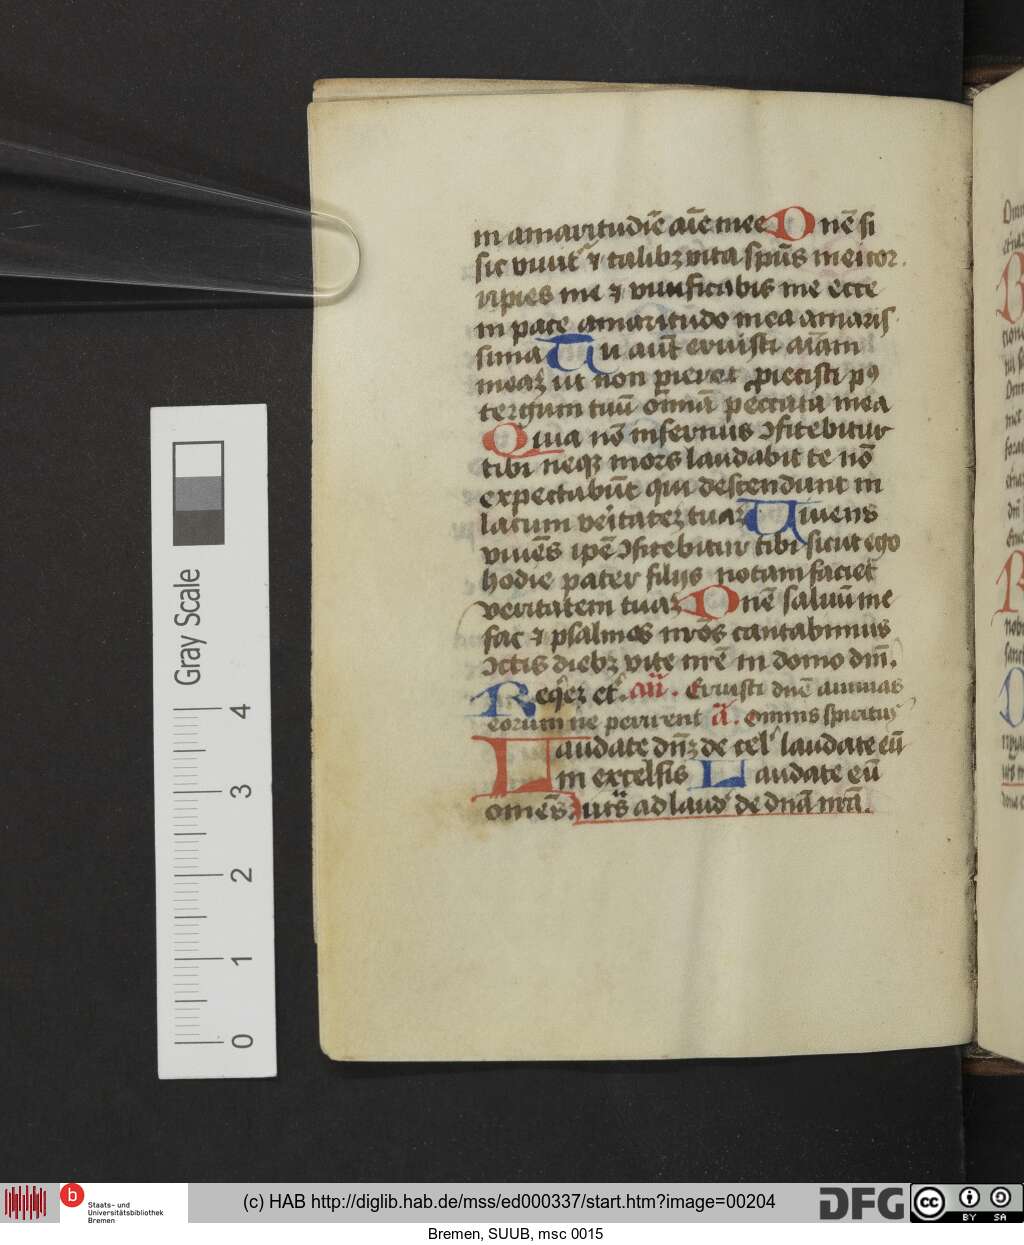 in amaritudīe aīe mee Dnē si
sic viuit̄ ⁊ talibꝫ vita spūs mei cor
ripies me ⁊ viuificabis me ecce
in pace amaritudo mea amaris
sima Tu aut̄ eruisti aīam
meaꝫ ut non ꝑieret ꝓiecisti pꝰ
tergum tuū omīa peccata mea
Quia nō infernus ↄfitebitur
tibi neqꝫ mors laudabit te nō
expectabūt qui descendunt in
lacum veritateꝫ tuaꝫ Uiuens
viuēs ipē ↄfitebitur tibi sicut ego
hodie pater filijs notam faciet
veritatem tuaꝫ Dnē saluū me
fac ⁊ psalmos nros cantabimus
ↄctis diebꝫ vite nrē in domo dnī.
Reqēꝫ et̄. añ. Eruisti dnē animas
eorum ne perirent a. Omnis spiritus
Laudate dnꝫ de cel' laudate eū
in excelsis Laudate eū
omēs ut s ad laud' de dnā nrā.
Gray Scale
0 1 2 3 4
b Staats- und
Universitätsbibliothek
Bremen
(c) HAB http://diglib.hab.de/mss/ed000337/start.htm?image=00204
DFG
cc BY SA
Bremen, SUUB, msc 0015